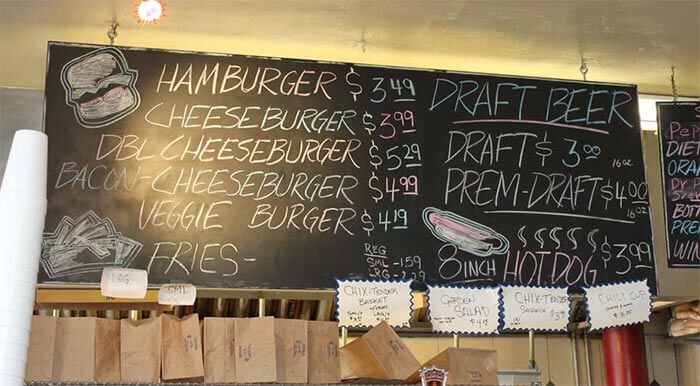 HAMBURGER $3.49
CHEESEBURGER $3.99
DBL CHEESEBURGER $5.29
BACON-CHEESEBURGER $4.99
VEGGIE BURGER $4.19
FRIES-
REG
SML -1.59
LRG -2.29
DRAFT BEER
DRAFT $3.00
16 OZ.
PREM-DRAFT $4.00
16 OZ
8 INCH HOT DOG $3.99
LRG
SML
CHIX-TENDER
BASKET
GARDEN
SALAD
$4.
CHIX-TENDER
SANDWICH
CHILI CUP
DIET
WIN